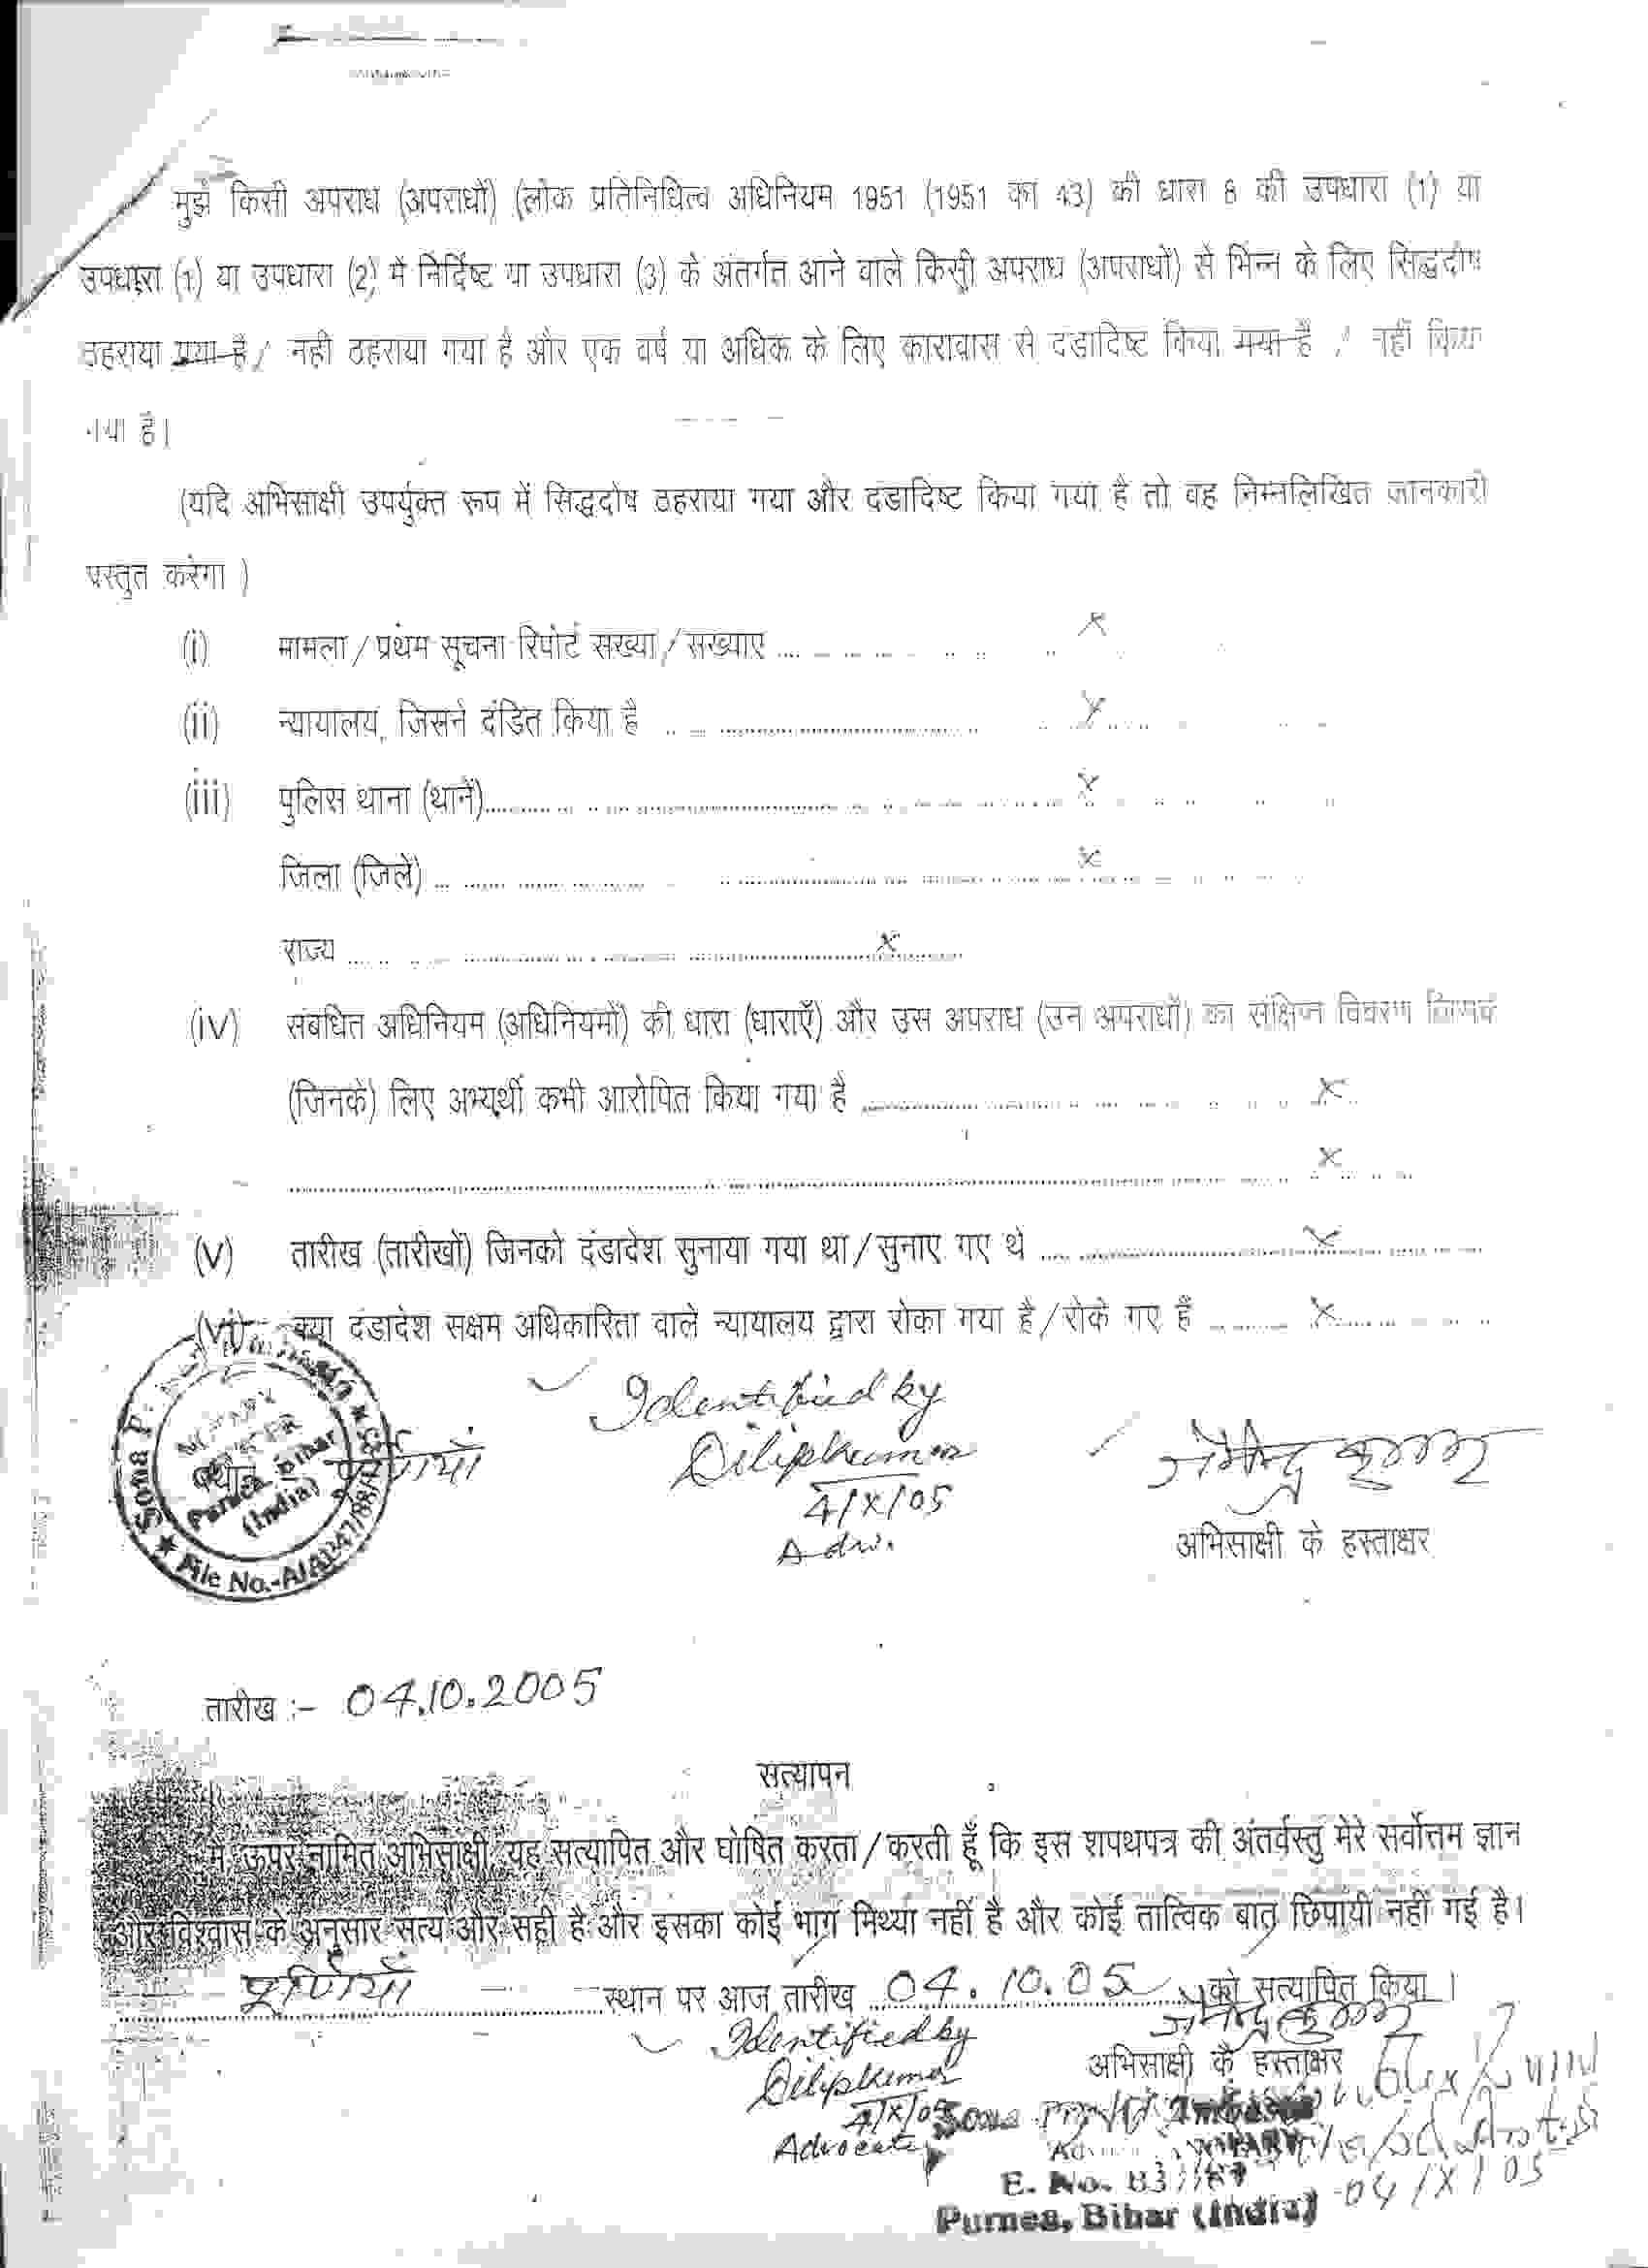 मुझे किसी अपराध (अपराधों) (लोक प्रतिनिधित्व अधिनियम 1951 (1951 का 43) की धारा 8 की उपधारा (1) या
उपधारा (1) या उपधारा (2) में निर्दिष्ट या उपधारा (3) के अंतर्गत आने वाले किसी अपराध (अपराधों) से भिन्न के लिए सिद्धदोष
ठहराया गया है / नहीं ठहराया गया है और एक वर्ष या अधिक के लिए कारावास से दंडादिष्ट किया गया है / नहीं किया
गया है।
(यदि अभिसाक्षी उपर्युक्त रूप में सिद्धदोष ठहराया गया और दंडादिष्ट किया गया है तो वह निम्नलिखित जानकारी
प्रस्तुत करेगा )
(i) मामला / प्रथम सूचना रिपोर्ट संख्या / संख्याएं .... x
(ii) न्यायालय, जिसने दंडित किया है .... x
(iii) पुलिस थाना (थानें).... x
जिला (जिलें) .... x
राज्य .... x
(iv) संबंधित अधिनियम (अधिनियमों) की धारा (धाराएँ) और उस अपराध (उन अपराधों) का संक्षिप्त विवरण जिसके
(जिनके) लिए अभ्यर्थी कभी आरोपित किया गया है .... x
.... x
(v) तारीख (तारीखों) जिनको दंडादेश सुनाया गया था / सुनाए गए थे .... x
(vi) क्या दंडादेश सक्षम अधिकारिता वाले न्यायालय द्वारा रोका गया है / रोके गए हैं .... x
Sona P.
Purnea, Bihar
(India)
★ File No.-
स्थान पूर्णियाँ
Identified by
Dilip kumar
4/X/05
Adv.
कुमार
अभिसाक्षी के हस्ताक्षर
तारीख :- 04.10.2005
सत्यापन
मैं ऊपर नामित अभिसाक्षी यह सत्यापित और घोषित करता / करती हूँ कि इस शपथपत्र की अंतर्वस्तु मेरे सर्वोत्तम ज्ञान
और विश्वास के अनुसार सत्य और सही है और इसका कोई भाग मिथ्या नहीं है और कोई तात्विक बात छिपायी नहीं गई है।
पूर्णियाँ स्थान पर आज तारीख 04.10.05 को सत्यापित किया ।
Identified by
Dilip kumar
4/X/05
Advocate
कुमार
अभिसाक्षी के हस्ताक्षर
Sona
E. No.
Purnea, Bihar (India)
04/X/05